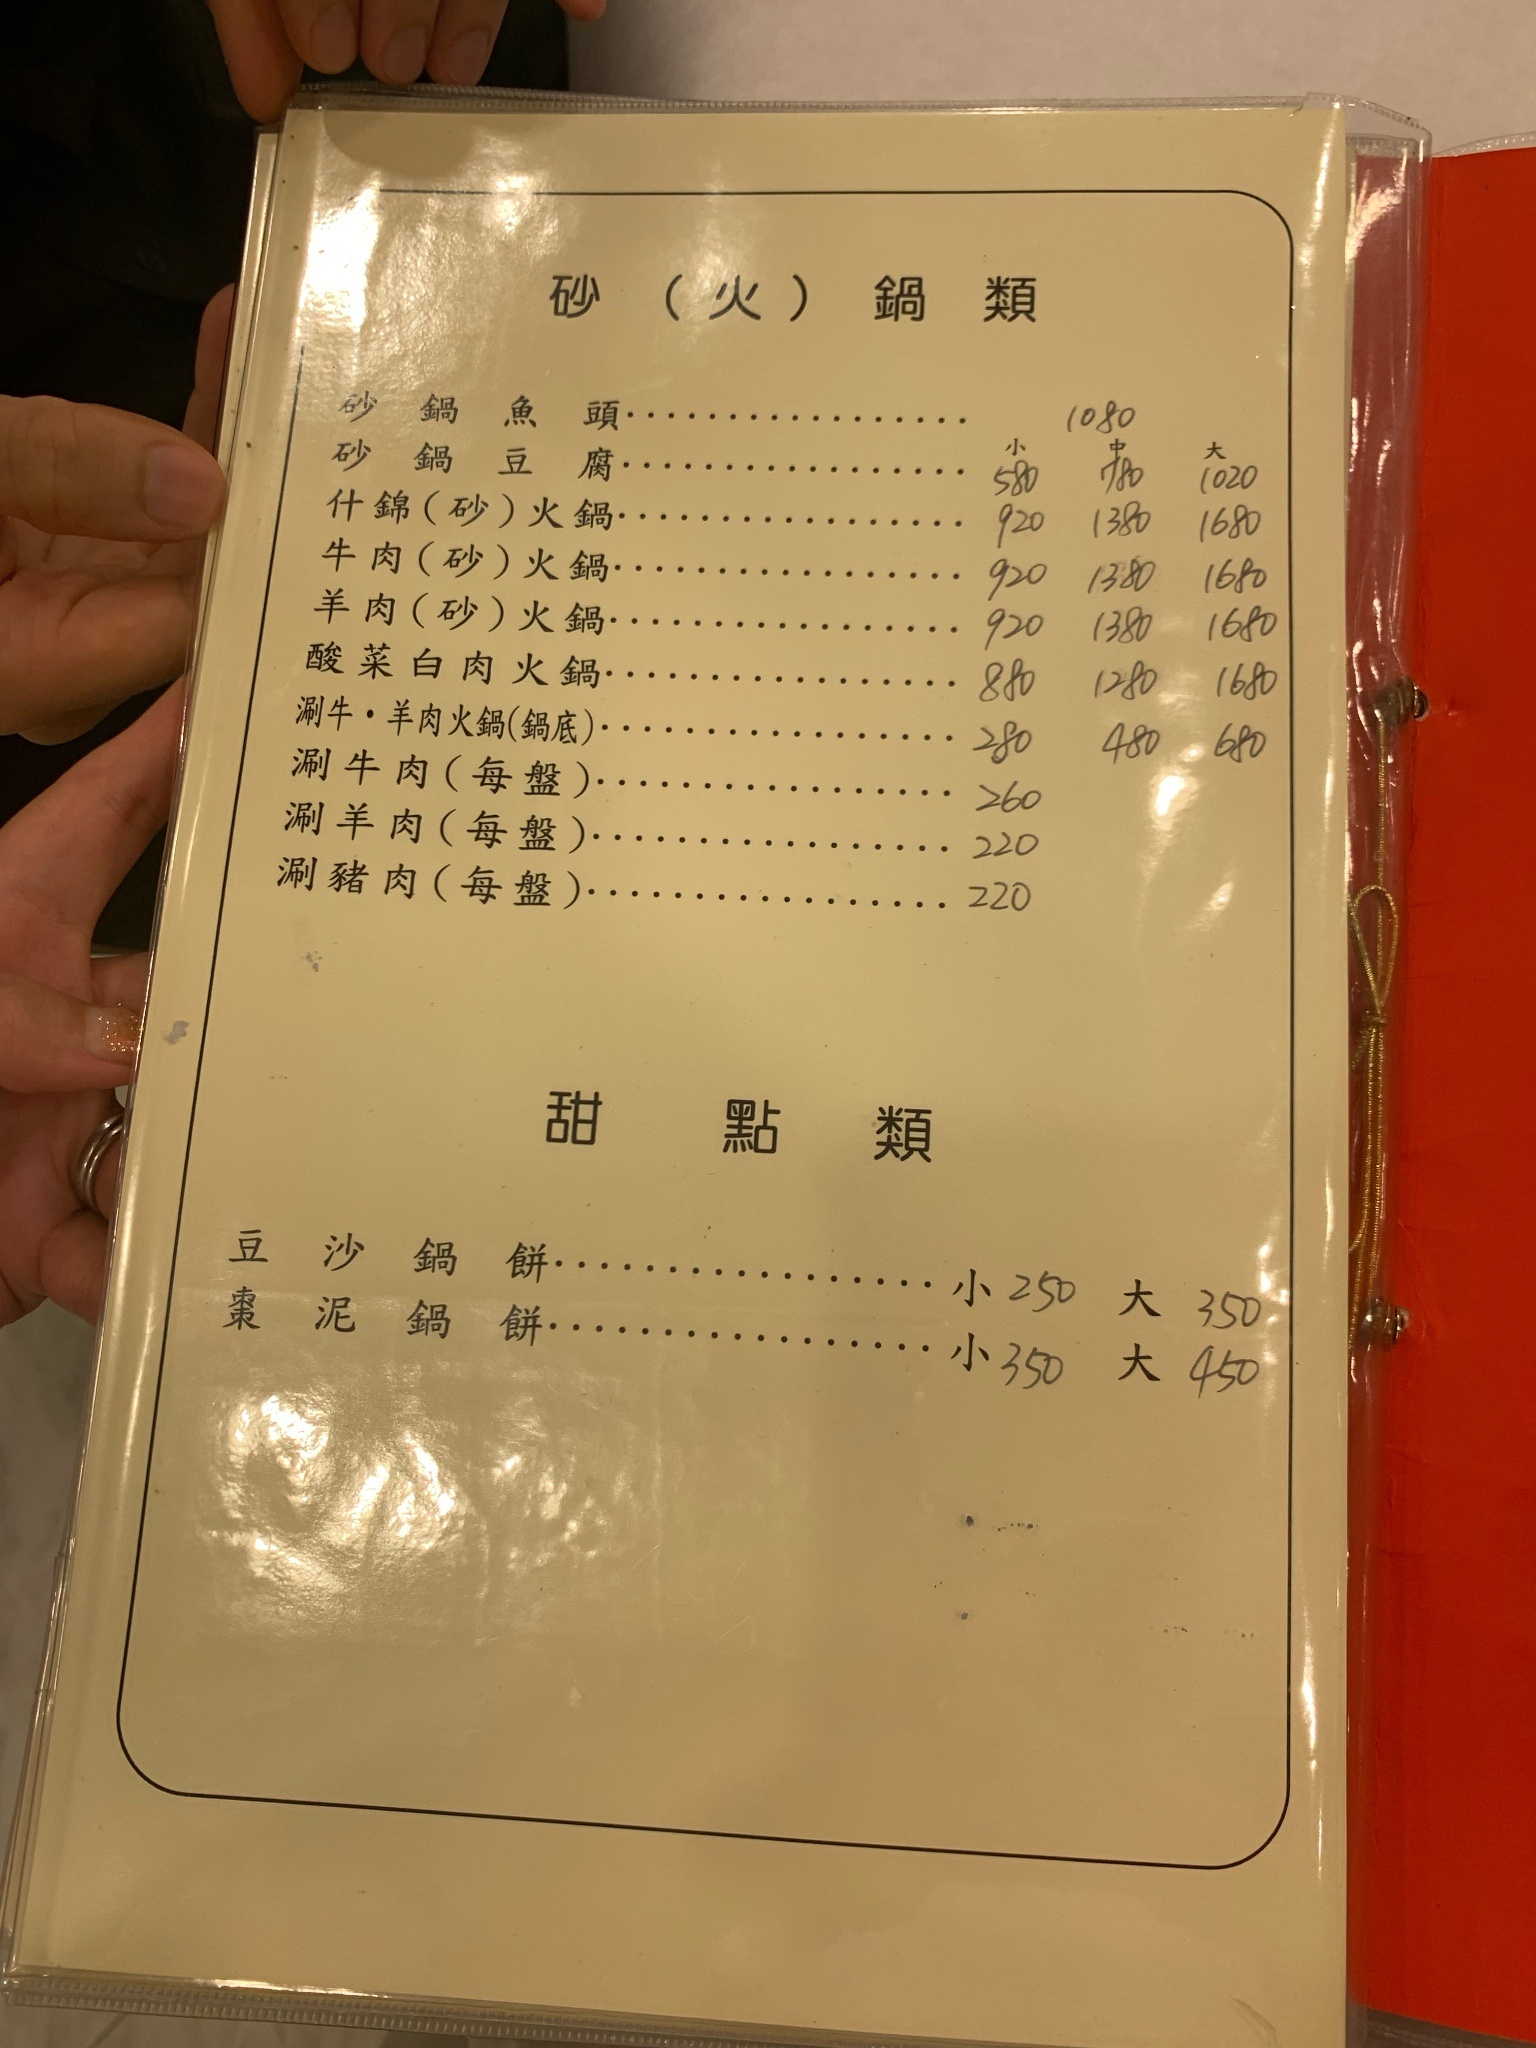 砂（火）鍋類
砂鍋魚頭 1080
小 中 大
砂鍋豆腐 580 780 1020
什錦(砂)火鍋 920 1380 1680
牛肉(砂)火鍋 920 1380 1680
羊肉(砂)火鍋 920 1380 1680
酸菜白肉火鍋 880 1280 1680
涮牛・羊肉火鍋(鍋底) 280 480 680
涮牛肉(每盤) 260
涮羊肉(每盤) 220
涮豬肉(每盤) 220
甜點類
豆沙鍋餅 小 250 大 350
棗泥鍋餅 小 350 大 450